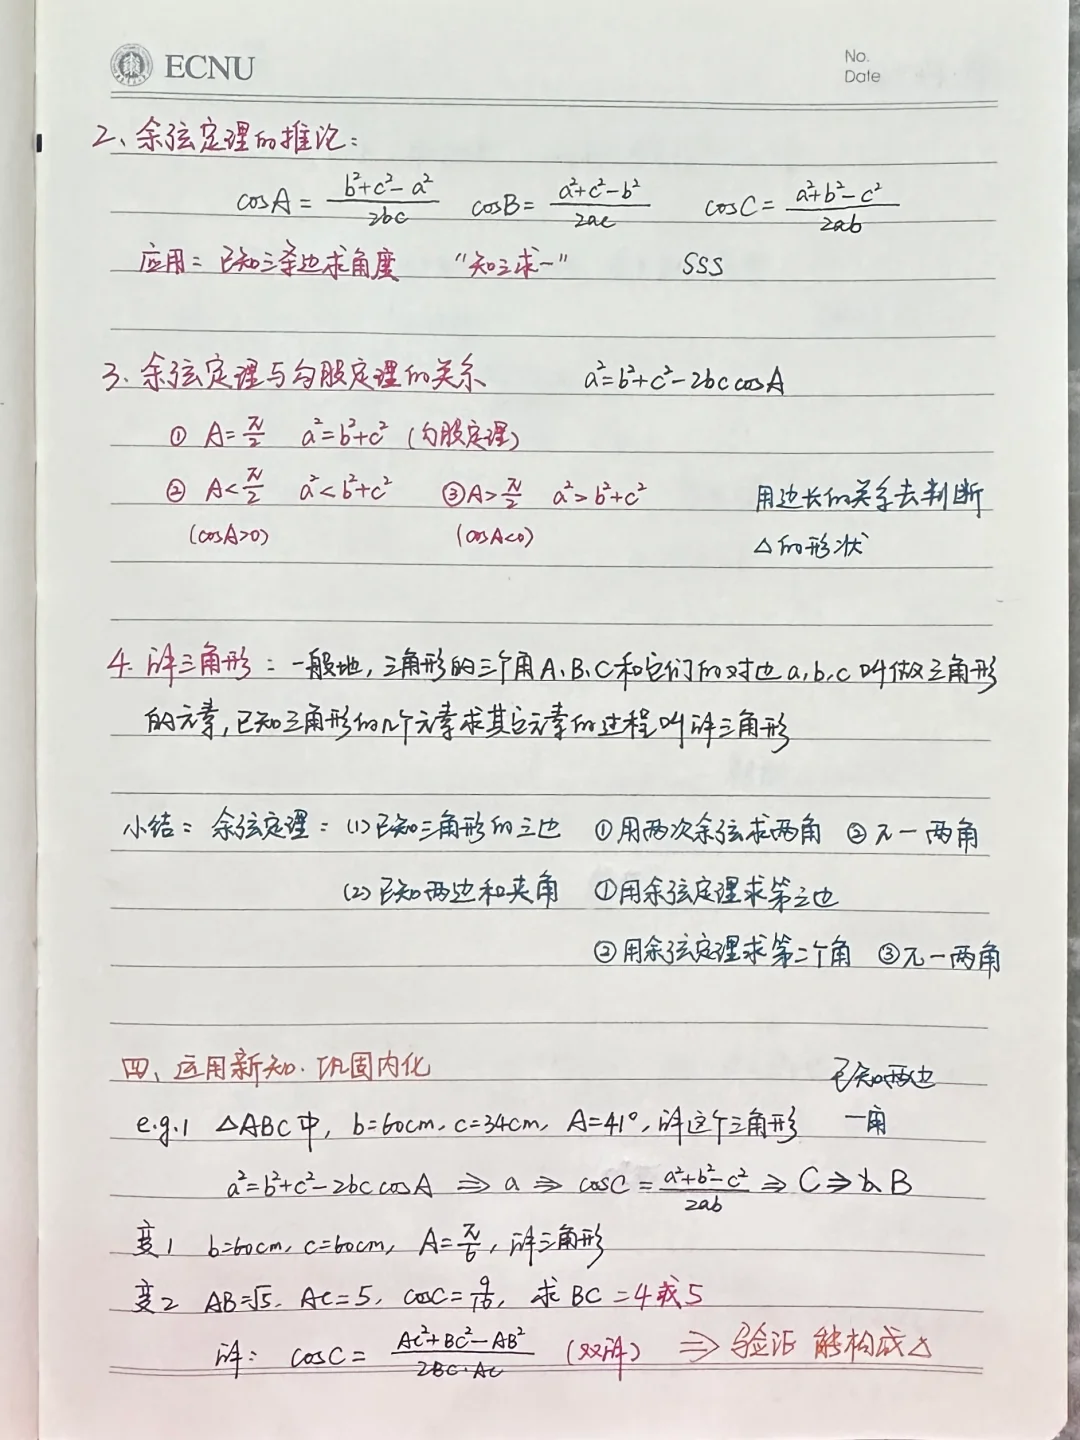 ECNU
No.
Date
2、余弦定理的推论:
cosA = (b²+c²-a²)/2bc cosB = (a²+c²-b²)/2ac cosC = (a²+b²-c²)/2ab
应用: 已知三条边求角度 “知三求一” SSS
3、余弦定理与勾股定理的关系 a²=b²+c²-2bc cosA
① A=π/2 a²=b²+c² (勾股定理)
② A<π/2 a²<b²+c² ③A>π/2 a²>b²+c² 用边长的关系去判断
(cosA>0) (cosA<0) △的形状
4. 解三角形: 一般地, 三角形的三个角A、B、C和它们的对边a,b,c叫做三角形
的元素, 已知三角形的几个元素求其它元素的过程叫解三角形
小结: 余弦定理: (1)已知三角形的三边 ①用两次余弦求两角 ②π-两角
(2)已知两边和夹角 ①用余弦定理求第三边
②用余弦定理求第二个角 ③π-两角
四、运用新知·巩固内化
已知两边
e.g.1 △ABC中, b=60cm, c=34cm, A=41°, 解这个三角形 一角
a²=b²+c²-2bc cosA ⇒ a ⇒ cosC = (a²+b²-c²)/2ab ⇒ C ⇒ B
变1 b=60cm, c=60cm, A=π/6, 解三角形
变2 AB=√5, AC=5, cosC=9/10, 求BC =4或5
解: cosC = (AC²+BC²-AB²)/2BC·AC (双解) ⇒ 验证 能构成△